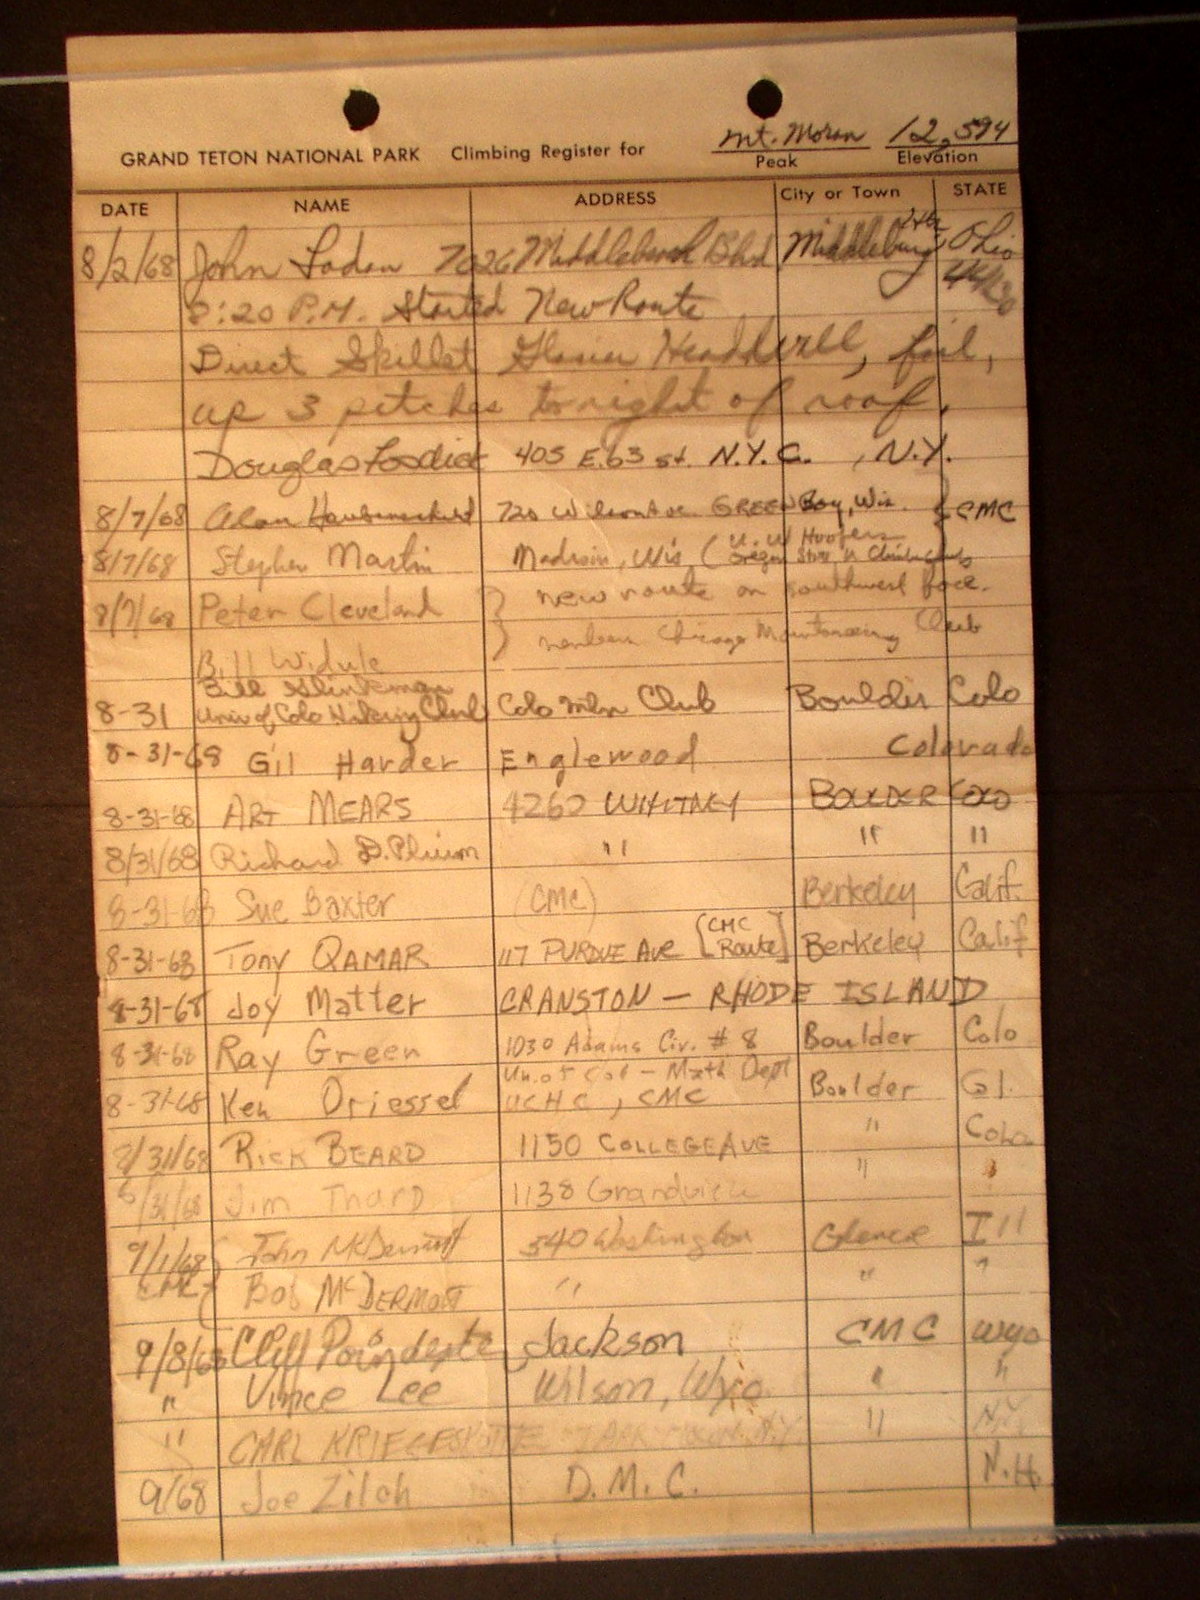 Mt. Moran 12,594
GRAND TETON NATIONAL PARK Climbing Register for Peak Elevation
DATE NAME ADDRESS City or Town STATE
8/2/68 John 7026 Blvd Middleburg Ohio
P.M. Started New Route
Direct Skillet Headwall, fail,
up 3 pitches to right of roof.
Douglas 405 E. 63 st. N.Y.C. , N.Y.
8/7/68 Alan 720 Wilson Ave. GREEN Bay, Wis. { CMC
8/7/68 Stephen Martin Madison, Wis (U.W Hoofers
8/7/68 Peter Cleveland } new route on southwest face.
Bill Widule } Chicago Mountaineering Club
Bill
8-31 Univ of Colo Hiking Club Colo Mtn Club Boulder Colo
8-31-68 Gil Harder Englewood Colorado
8-31-68 ART MEARS 4260 WHITNEY BOULDER COLO
8/31/68 Richard " " "
8-31-68 Sue Baxter (CMC) Berkeley Calif.
8-31-68 Tony QAMAR 117 PURDUE AVE [CMC Route] Berkeley Calif
8-31-68 Joy Matter CRANSTON — RHODE ISLAND
8-31-68 Ray Green 1030 Adams Cir. # 8 Boulder Colo
Un. of Col - Math Dept
8-31-68 Ken Driessel UCHC, CMC Boulder
8/31/68 RICK BEARD 1150 COLLEGE AVE " Colo.
/31/68 Jim Tharp 1138 Grandview " "
9/1/68 { John McDermott 540 Washington Glencoe Ill
CMC { Bob McDERMOTT " " "
9/8/68 Cliff Poindexter Jackson CMC Wyo
" Vince Lee Wilson, Wyo. " "
" CARL " N.Y.
9/68 Joe Zilch D.M.C. N.H.